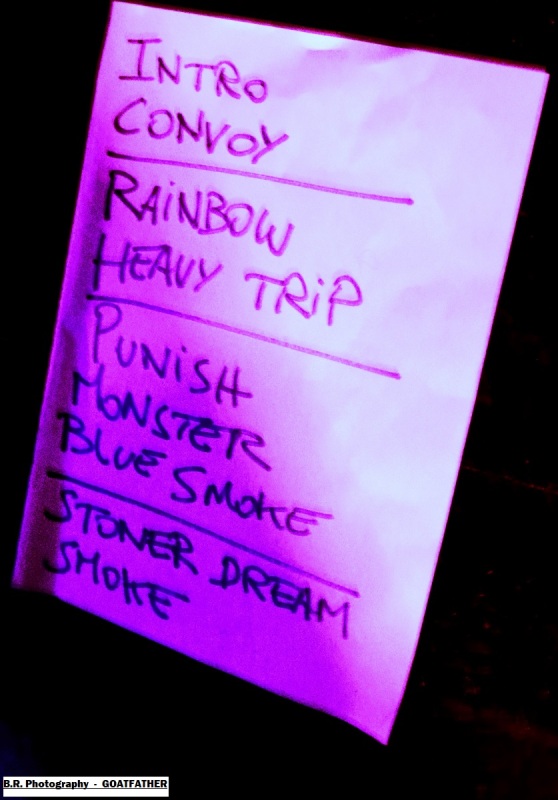 INTRO
CONVOY
RAiNBOW
HEAVY TRiP
PUNiSH
MONSTER
BLUE SMOKE
STONER DREAM
SMOKE
B.R. Photography - GOATFATHER